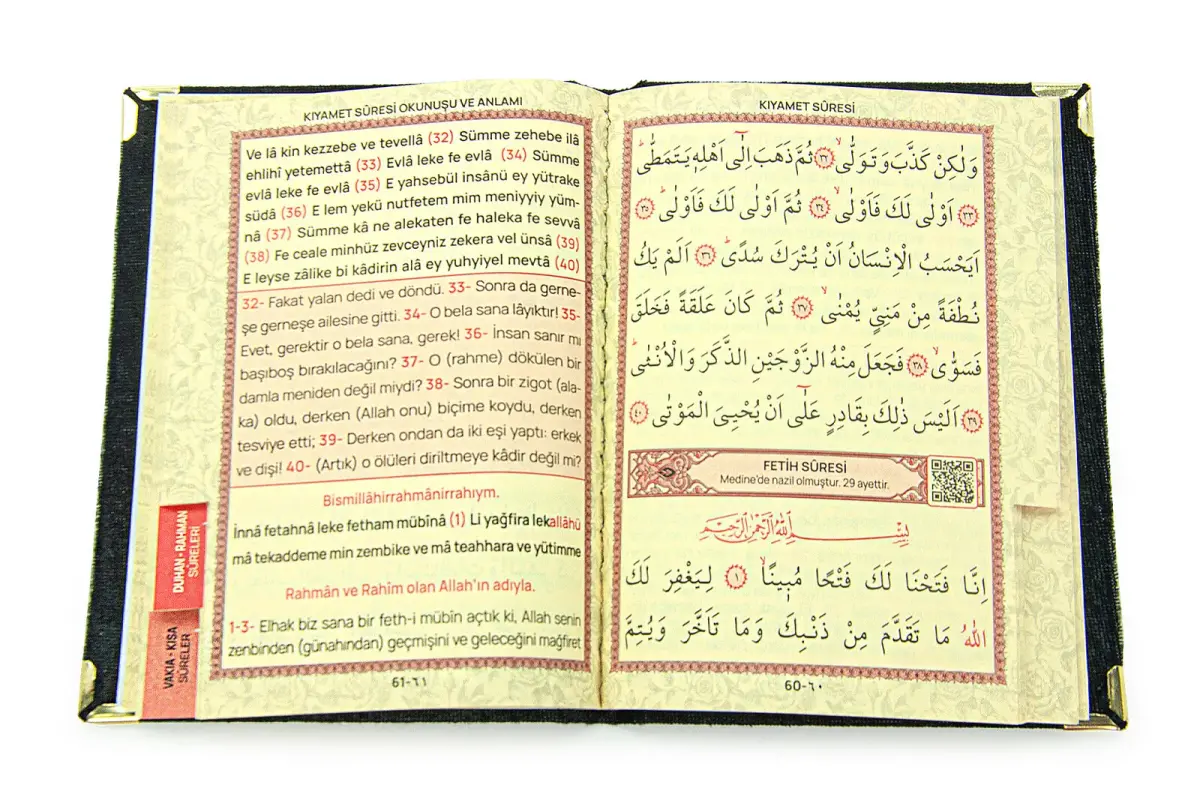 KIYAMET SÛRESİ
وَلٰكِنْ كَذَّبَ وَتَوَلّٰىۙ ﴿٣٢﴾ ثُمَّ ذَهَبَ اِلٰٓى اَهْلِه۪ يَتَمَطّٰىۜ
﴿٣٣﴾ اَوْلٰى لَكَ فَاَوْلٰىۙ ﴿٣٤﴾ ثُمَّ اَوْلٰى لَكَ فَاَوْلٰىۜ ﴿٣٥﴾
اَيَحْسَبُ الْاِنْسَانُ اَنْ يُتْرَكَ سُدًىۜ ﴿٣٦﴾ اَلَمْ يَكُ
نُطْفَةً مِنْ مَنِيٍّ يُمْنٰىۙ ﴿٣٧﴾ ثُمَّ كَانَ عَلَقَةً فَخَلَقَ
فَسَوّٰىۙ ﴿٣٨﴾ فَجَعَلَ مِنْهُ الزَّوْجَيْنِ الذَّكَرَ وَالْاُنْثٰىۜ
﴿٣٩﴾ اَلَيْسَ ذٰلِكَ بِقَادِرٍ عَلٰٓى اَنْ يُحْيِيَ الْمَوْتٰى ﴿٤٠﴾
FETİH SÛRESİ
Medine'de nazil olmuştur. 29 ayettir.
بِسْمِ اللّٰهِ الرَّحْمٰنِ الرَّح۪يمِ
اِنَّا فَتَحْنَا لَكَ فَتْحًا مُب۪ينًاۙ ﴿١﴾ لِيَغْفِرَ لَكَ
اللّٰهُ مَا تَقَدَّمَ مِنْ ذَنْبِكَ وَمَا تَاَخَّرَ وَيُتِمَّ
60-٦٠
KIYAMET SÛRESİ OKUNUŞU VE ANLAMI
Ve lâ kin kezzebe ve tevellâ (32) Sümme zehebe ilâ
ehlihî yetemettâ (33) Evlâ leke fe evlâ (34) Sümme
evlâ leke fe evlâ (35) E yahsebül insânü ey yütrake
südâ (36) E lem yekü nutfetem mim meniyyiy yüm-
nâ (37) Sümme kâ ne alekaten fe haleka fe sevvâ
(38) Fe ceale minhüz zevceyniz zekera vel ünsâ (39)
E leyse zâlike bi kâdirin alâ ey yuhyiyel mevtâ (40)
32- Fakat yalan dedi ve döndü. 33- Sonra da gerne-
şe gerneşe ailesine gitti. 34- O bela sana lâyıktır! 35-
Evet, gerektir o bela sana, gerek! 36- İnsan sanır mı
başıboş bırakılacağını? 37- O (rahme) dökülen bir
damla meniden değil miydi? 38- Sonra bir zigot (ala-
ka) oldu, derken (Allah onu) biçime koydu, derken
tesviye etti; 39- Derken ondan da iki eşi yaptı: erkek
ve dişi! 40- (Artık) o ölüleri diriltmeye kâdir değil mi?
Bismillâhirrahmânirrahıym.
İnnâ fetahnâ leke fetham mübînâ (1) Li yağfira lekallâhü
mâ tekaddeme min zembike ve mâ teahhara ve yütimme
Rahmân ve Rahîm olan Allah'ın adıyla.
1-3- Elhak biz sana bir feth-i mübîn açtık ki, Allah senin
zenbinden (günahından) geçmişini ve geleceğini mağfiret
61-٦١
DUHAN - RAHMAN
SÛRELERİ
VAKIA - KISA
SÛRELER